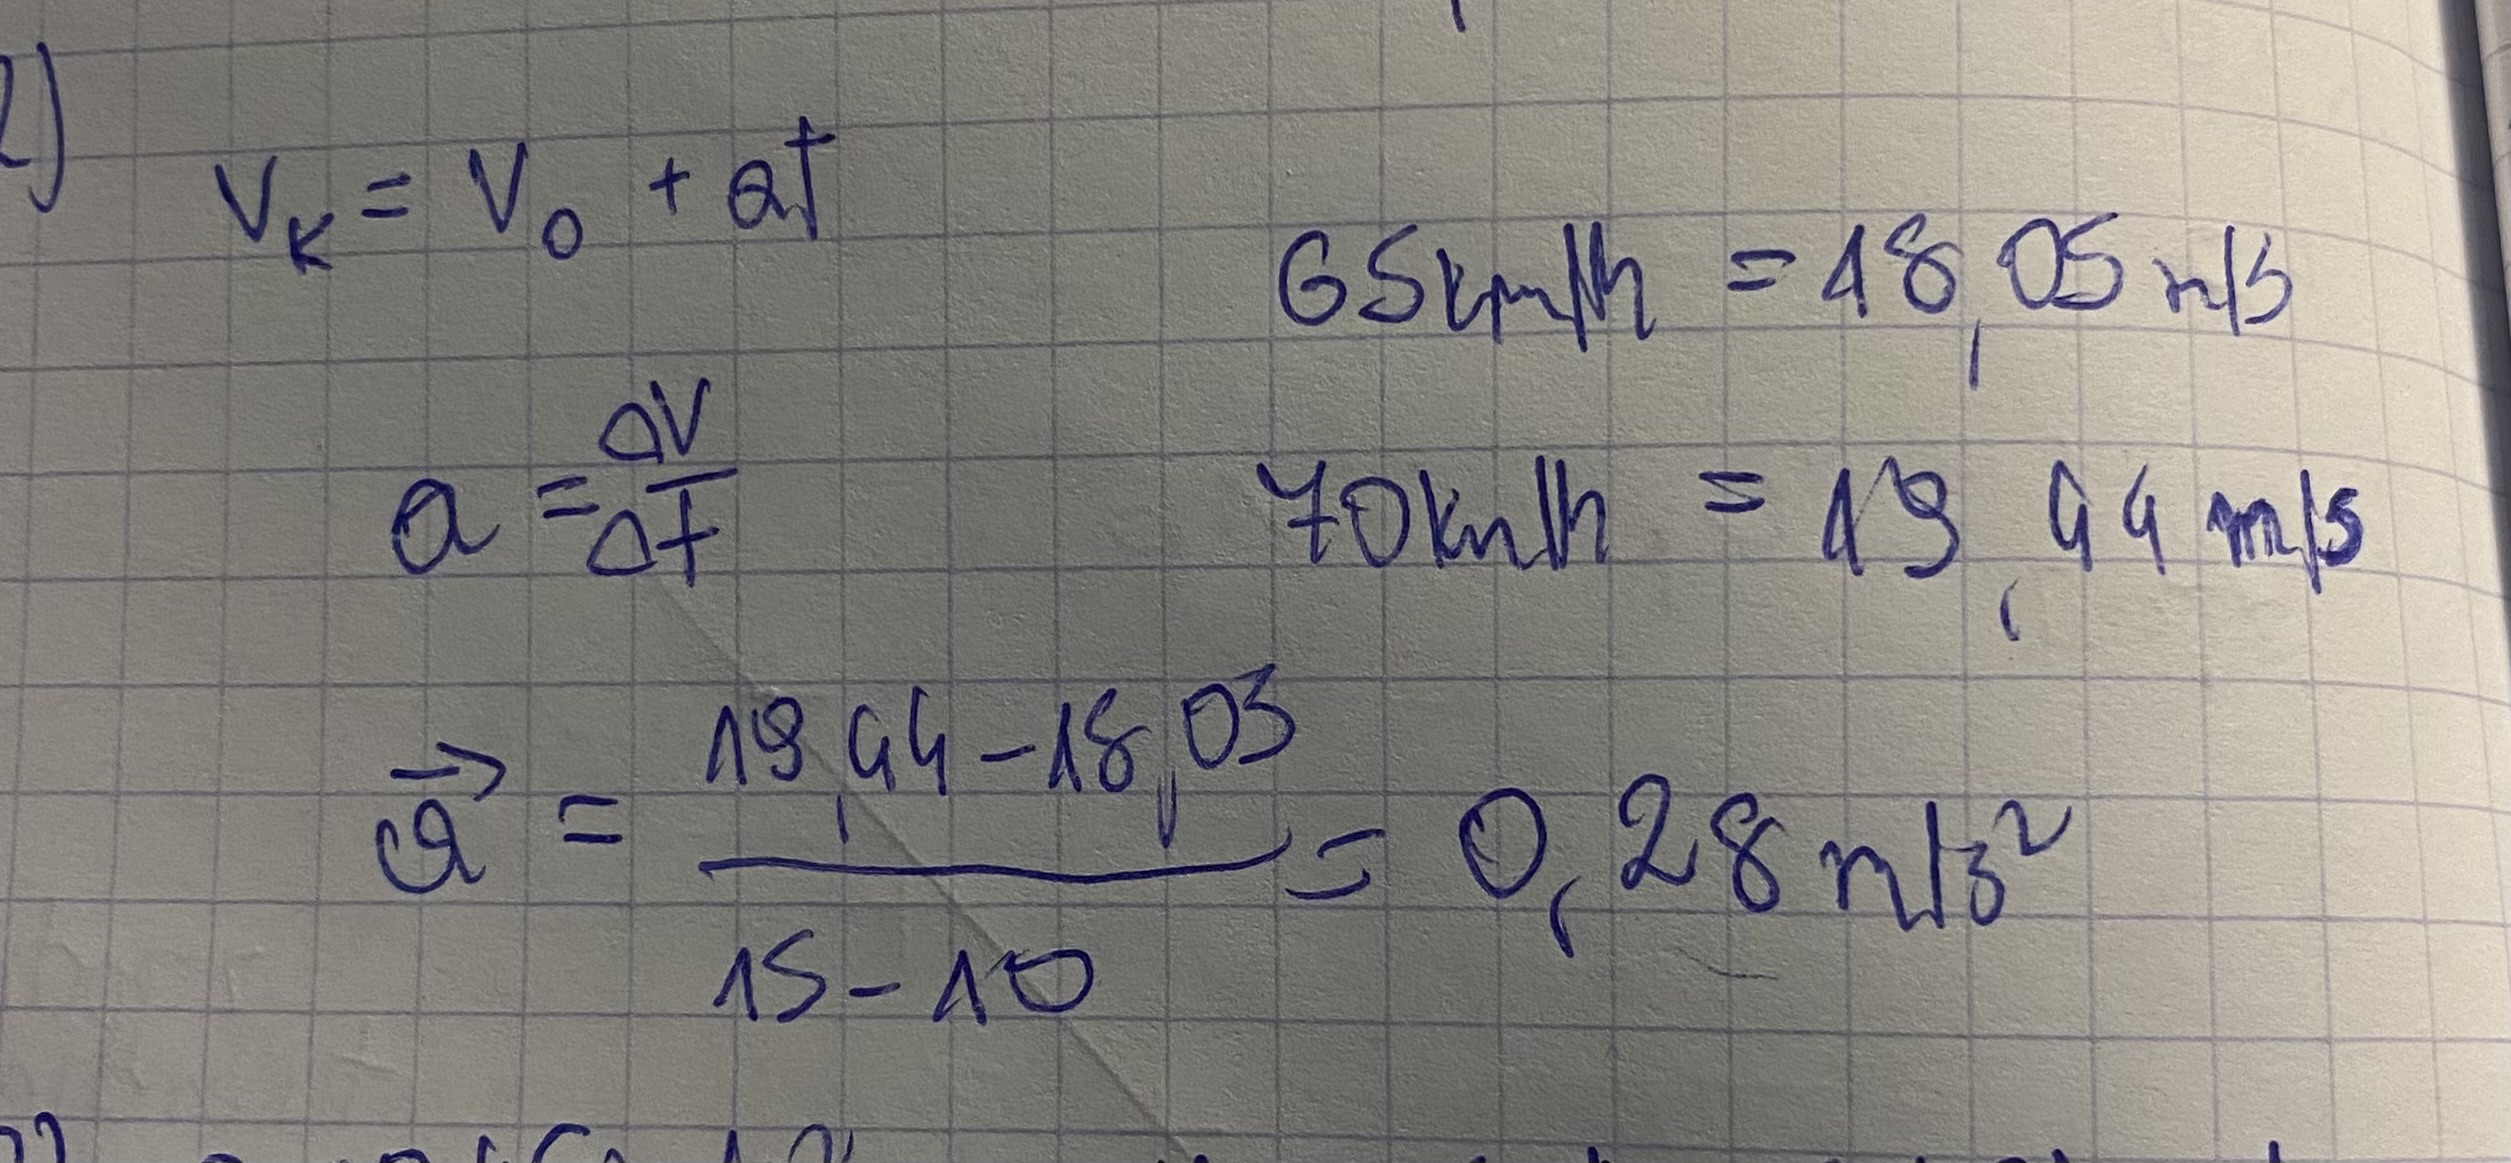 2)
V_K = V_0 + at
65km/h = 18,05 m/s
a = ΔV/Δt
70km/h = 19,44 m/s
a⃗ = (19,44 - 18,05)/(15 - 10) = 0,28 m/s²